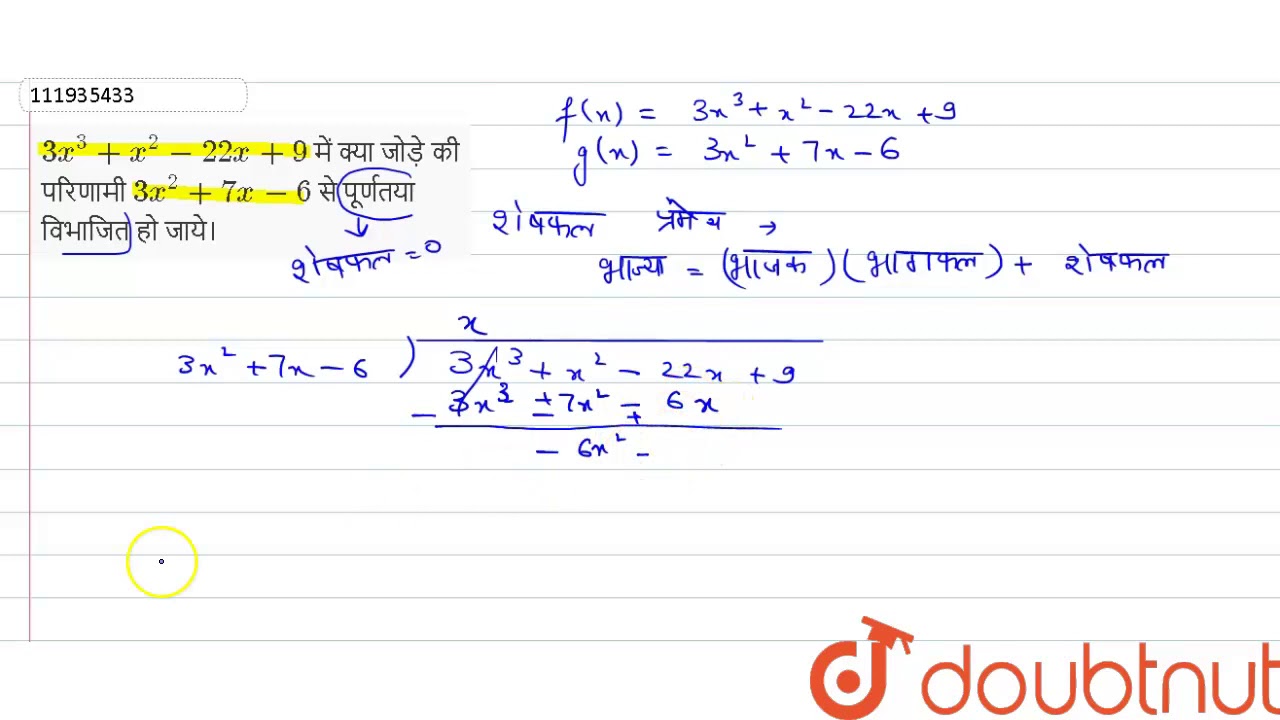 111935433
3x³ + x² − 22x + 9 में क्या जोड़े की
परिणामी 3x² + 7x − 6 से पूर्णतया
विभाजित हो जाये।
शेषफल = 0
f(x) = 3x³ + x² − 22x + 9
g(x) = 3x² + 7x − 6
शेषफल प्रमेय →
भाज्या = (भाजक) (भागफल) + शेषफल
x
3x² + 7x − 6 ) 3x³ + x² − 22x + 9
− 3x³ ± 7x² ∓ 6x
− 6x² −
doubtnut